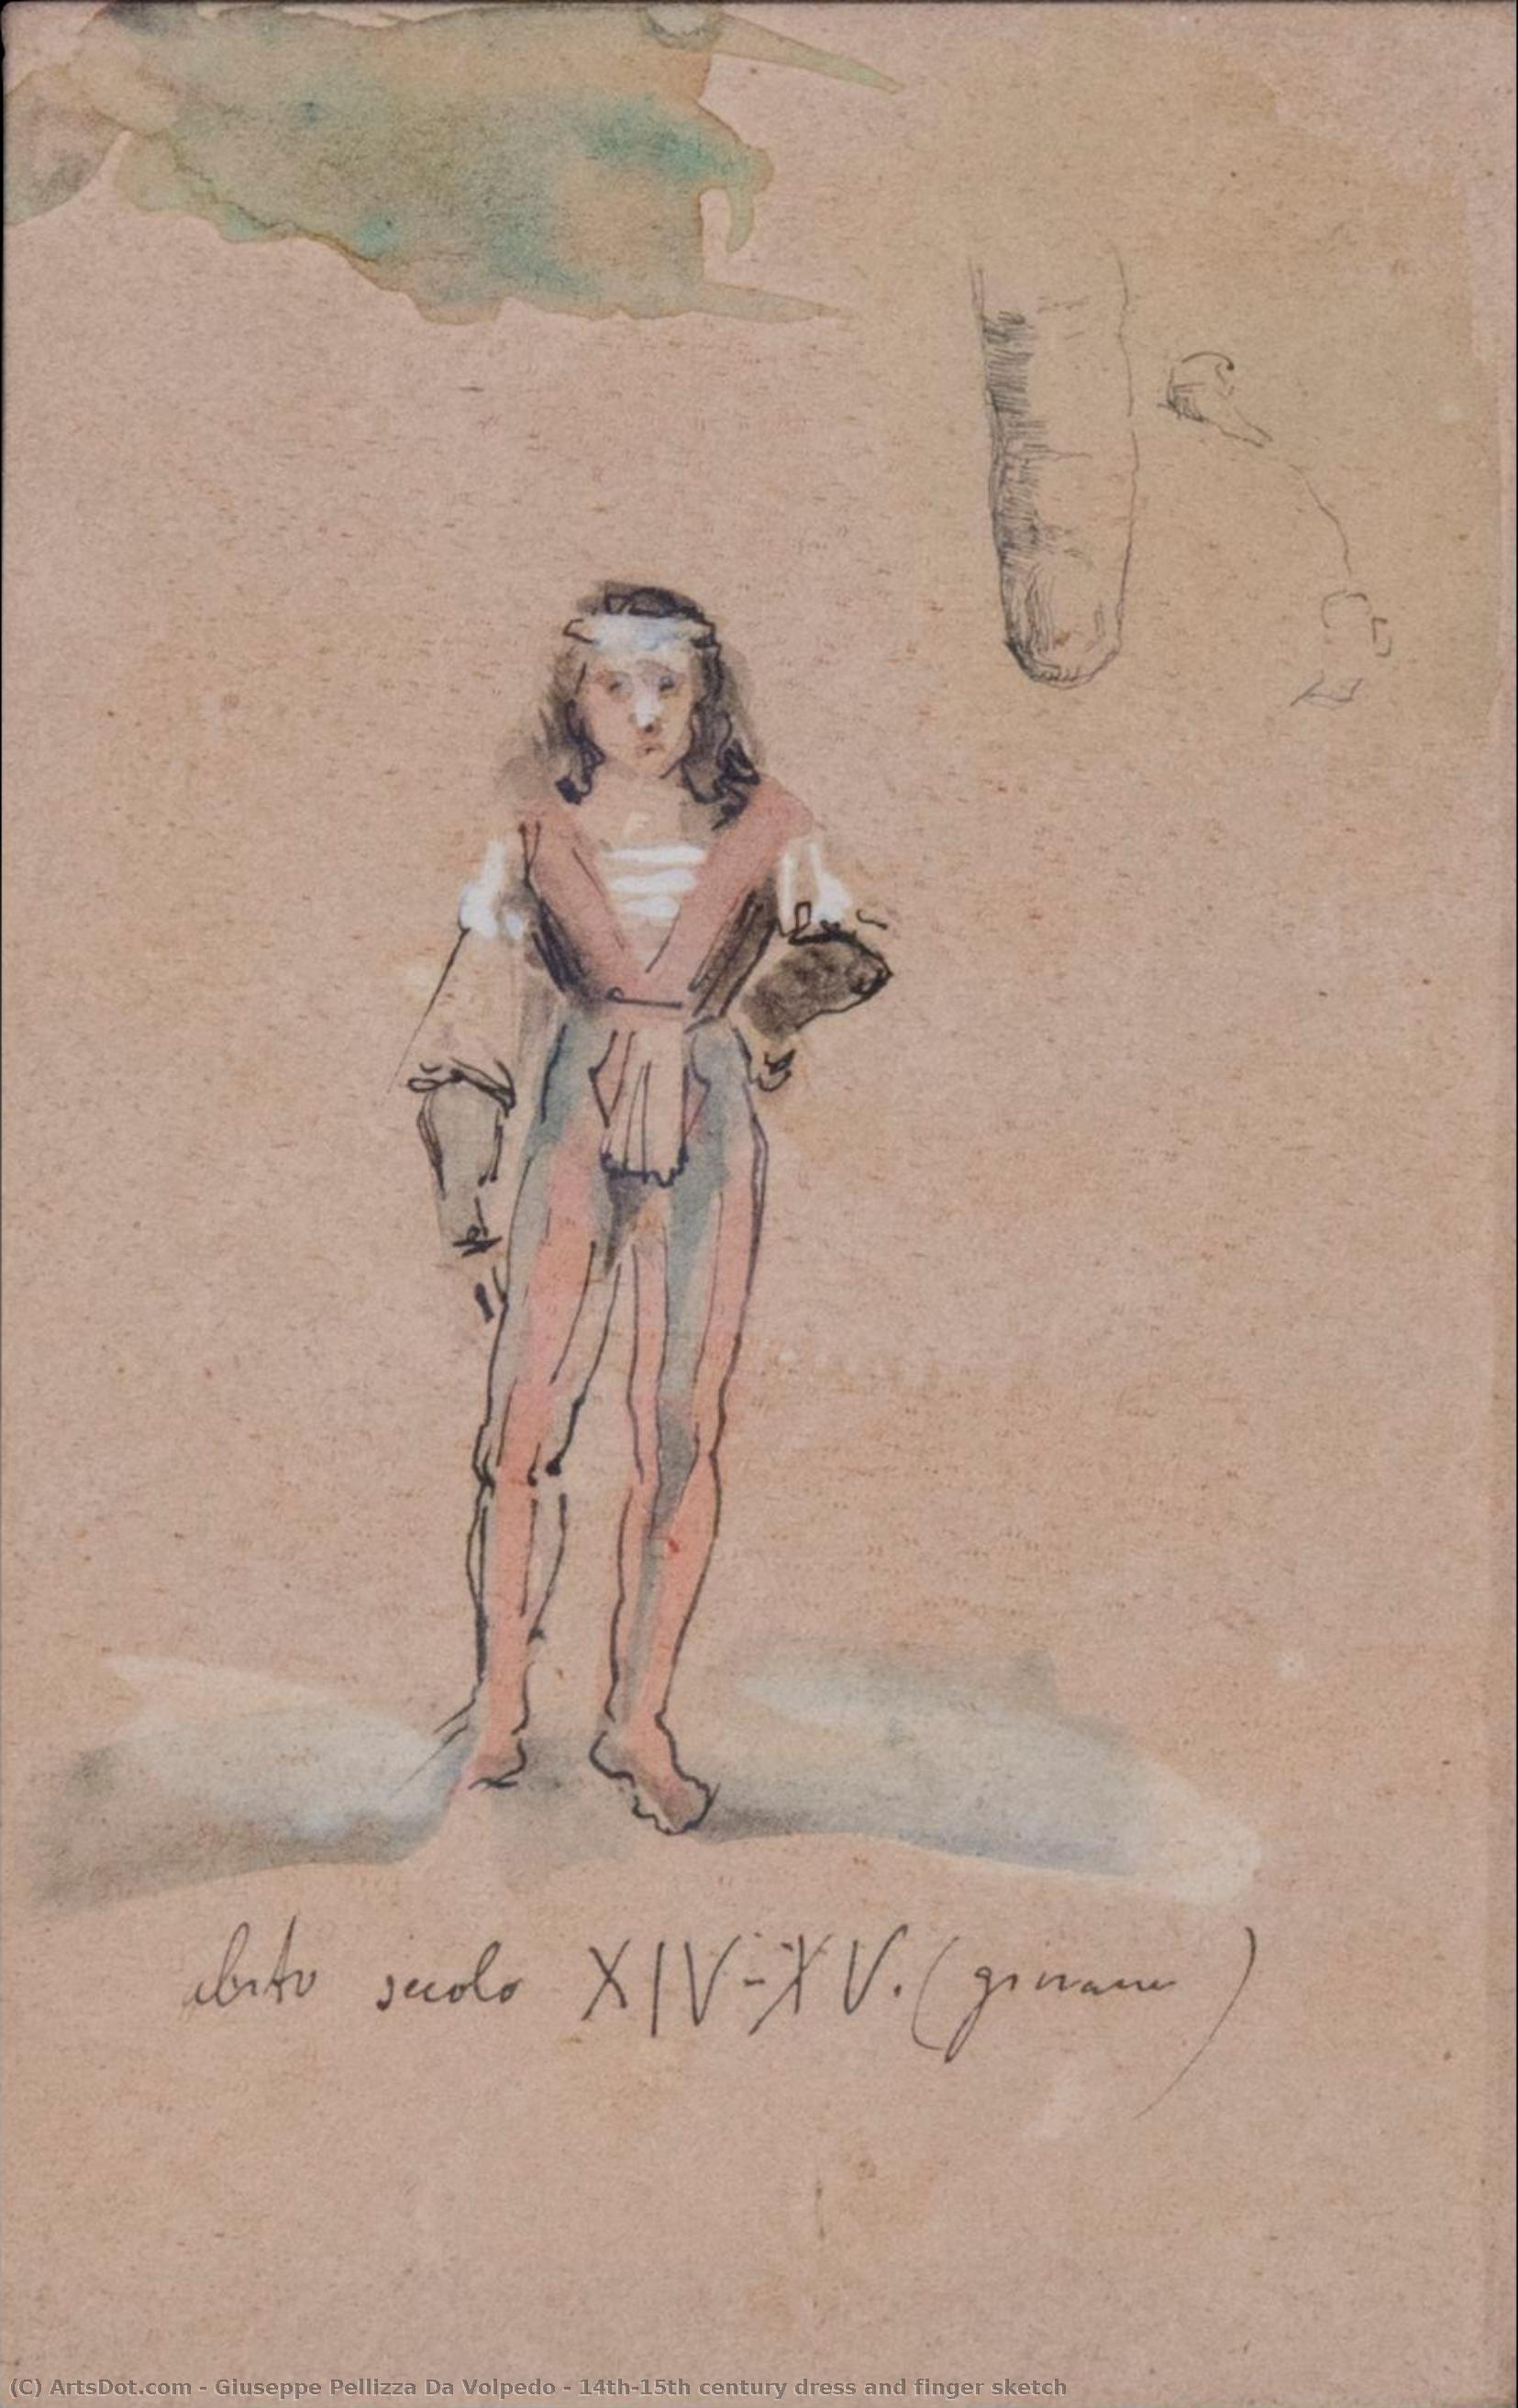 abito secolo XIV-XV. (giovane)
(C) ArtsDot.com - Giuseppe Pellizza Da Volpedo - 14th-15th century dress and finger sketch